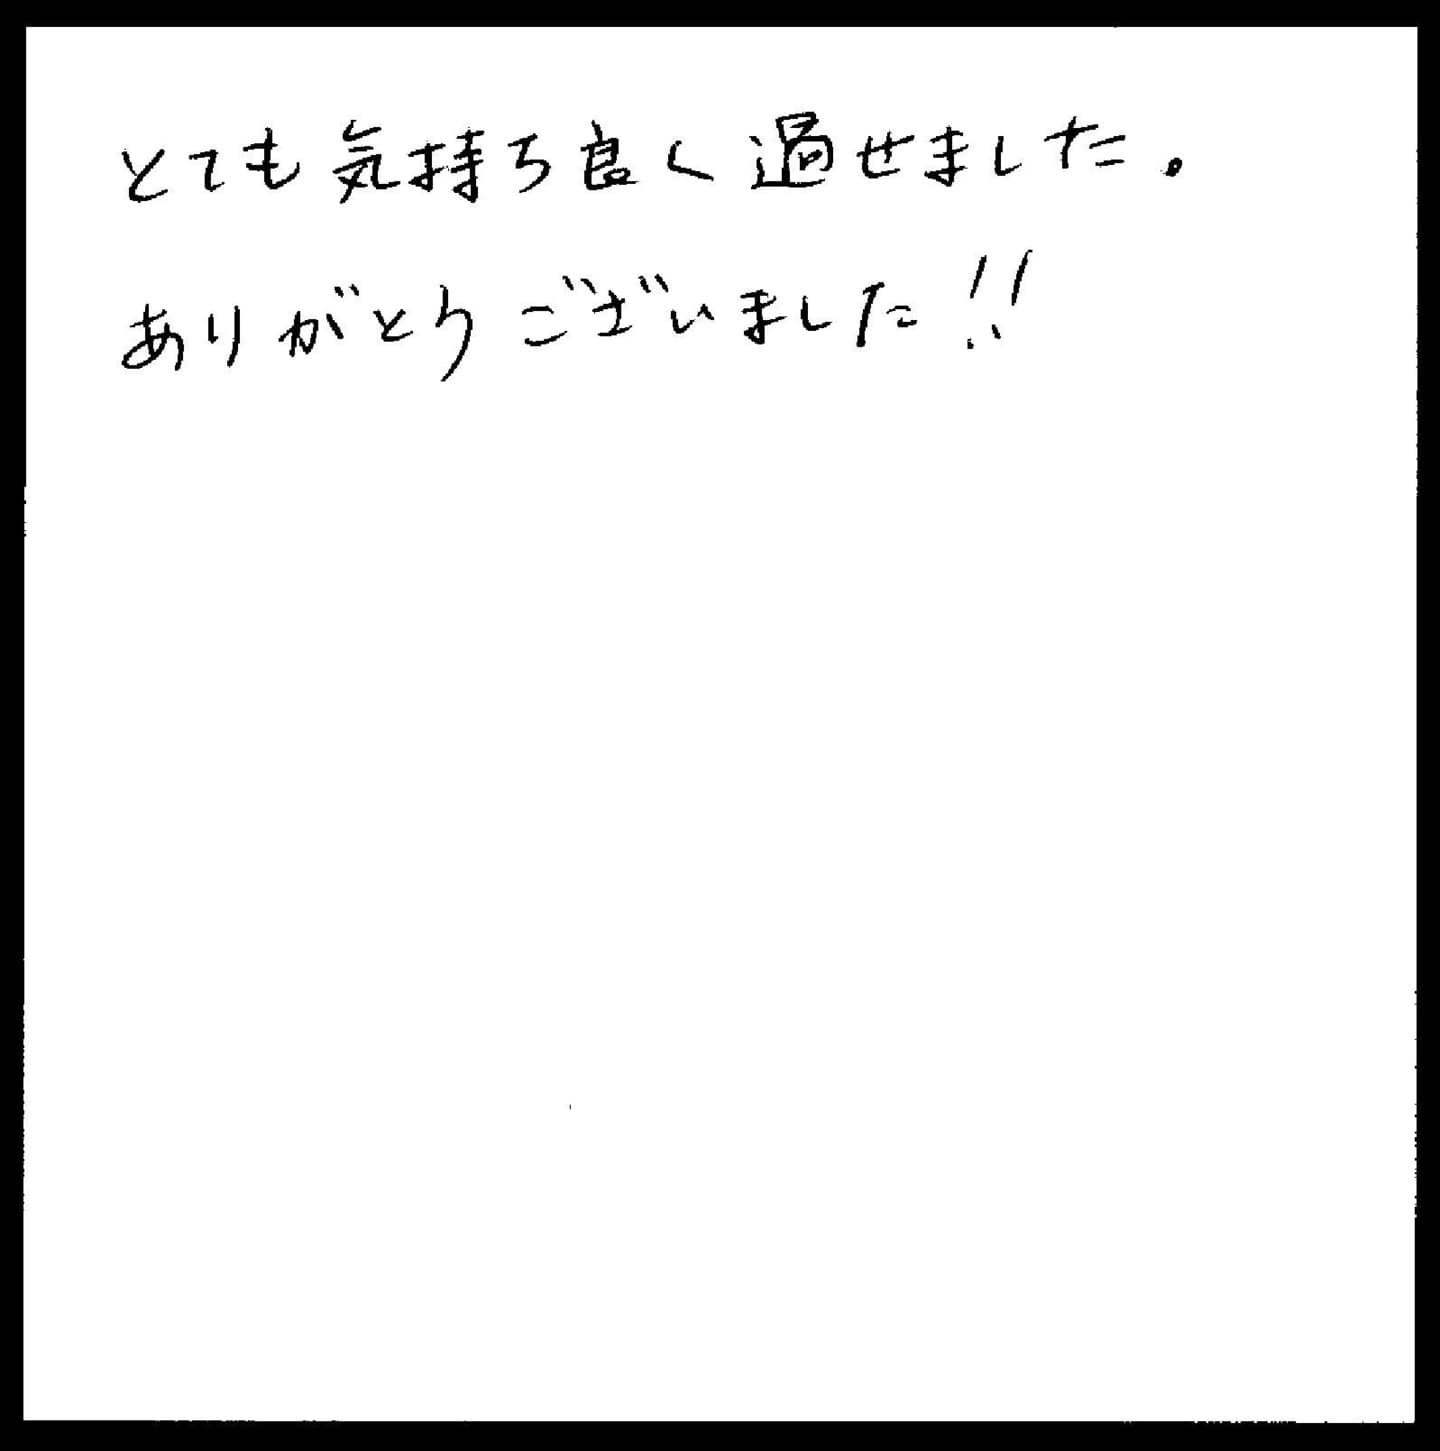 とても気持ち良く過せました。
ありがとうございました!!